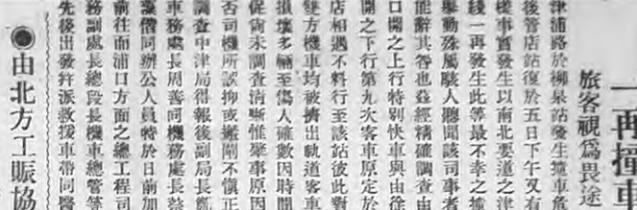 一再撞車
旅客視爲畏途
津浦路於柳泉站發生撞車危
後管店站復於五日下午又有
樣事實發生以南北要道之津
綫一再發生此等最不幸之撞
舉動殊屬駭人聽聞該司事者
能辭其咎也茲經精確調查由
口開之上行特別快車與由徐
開之下行第九次客車原定於
店相遇不料行至該站彼此對
雙方機車均被擠出軌道客車
損壞多輛至傷人確數因時間
促尚未調查清晰惟肇事原因
否司機所誤抑或搬閘不愼正
調查中津局得報後副局長
車務處長周善司機務處長
偕同辦公人員特於日前加
前往而浦口方面之總工程司
務副處長總段長機車總管等
先後出發幷派救援車帶同醫
●由北方工賑協